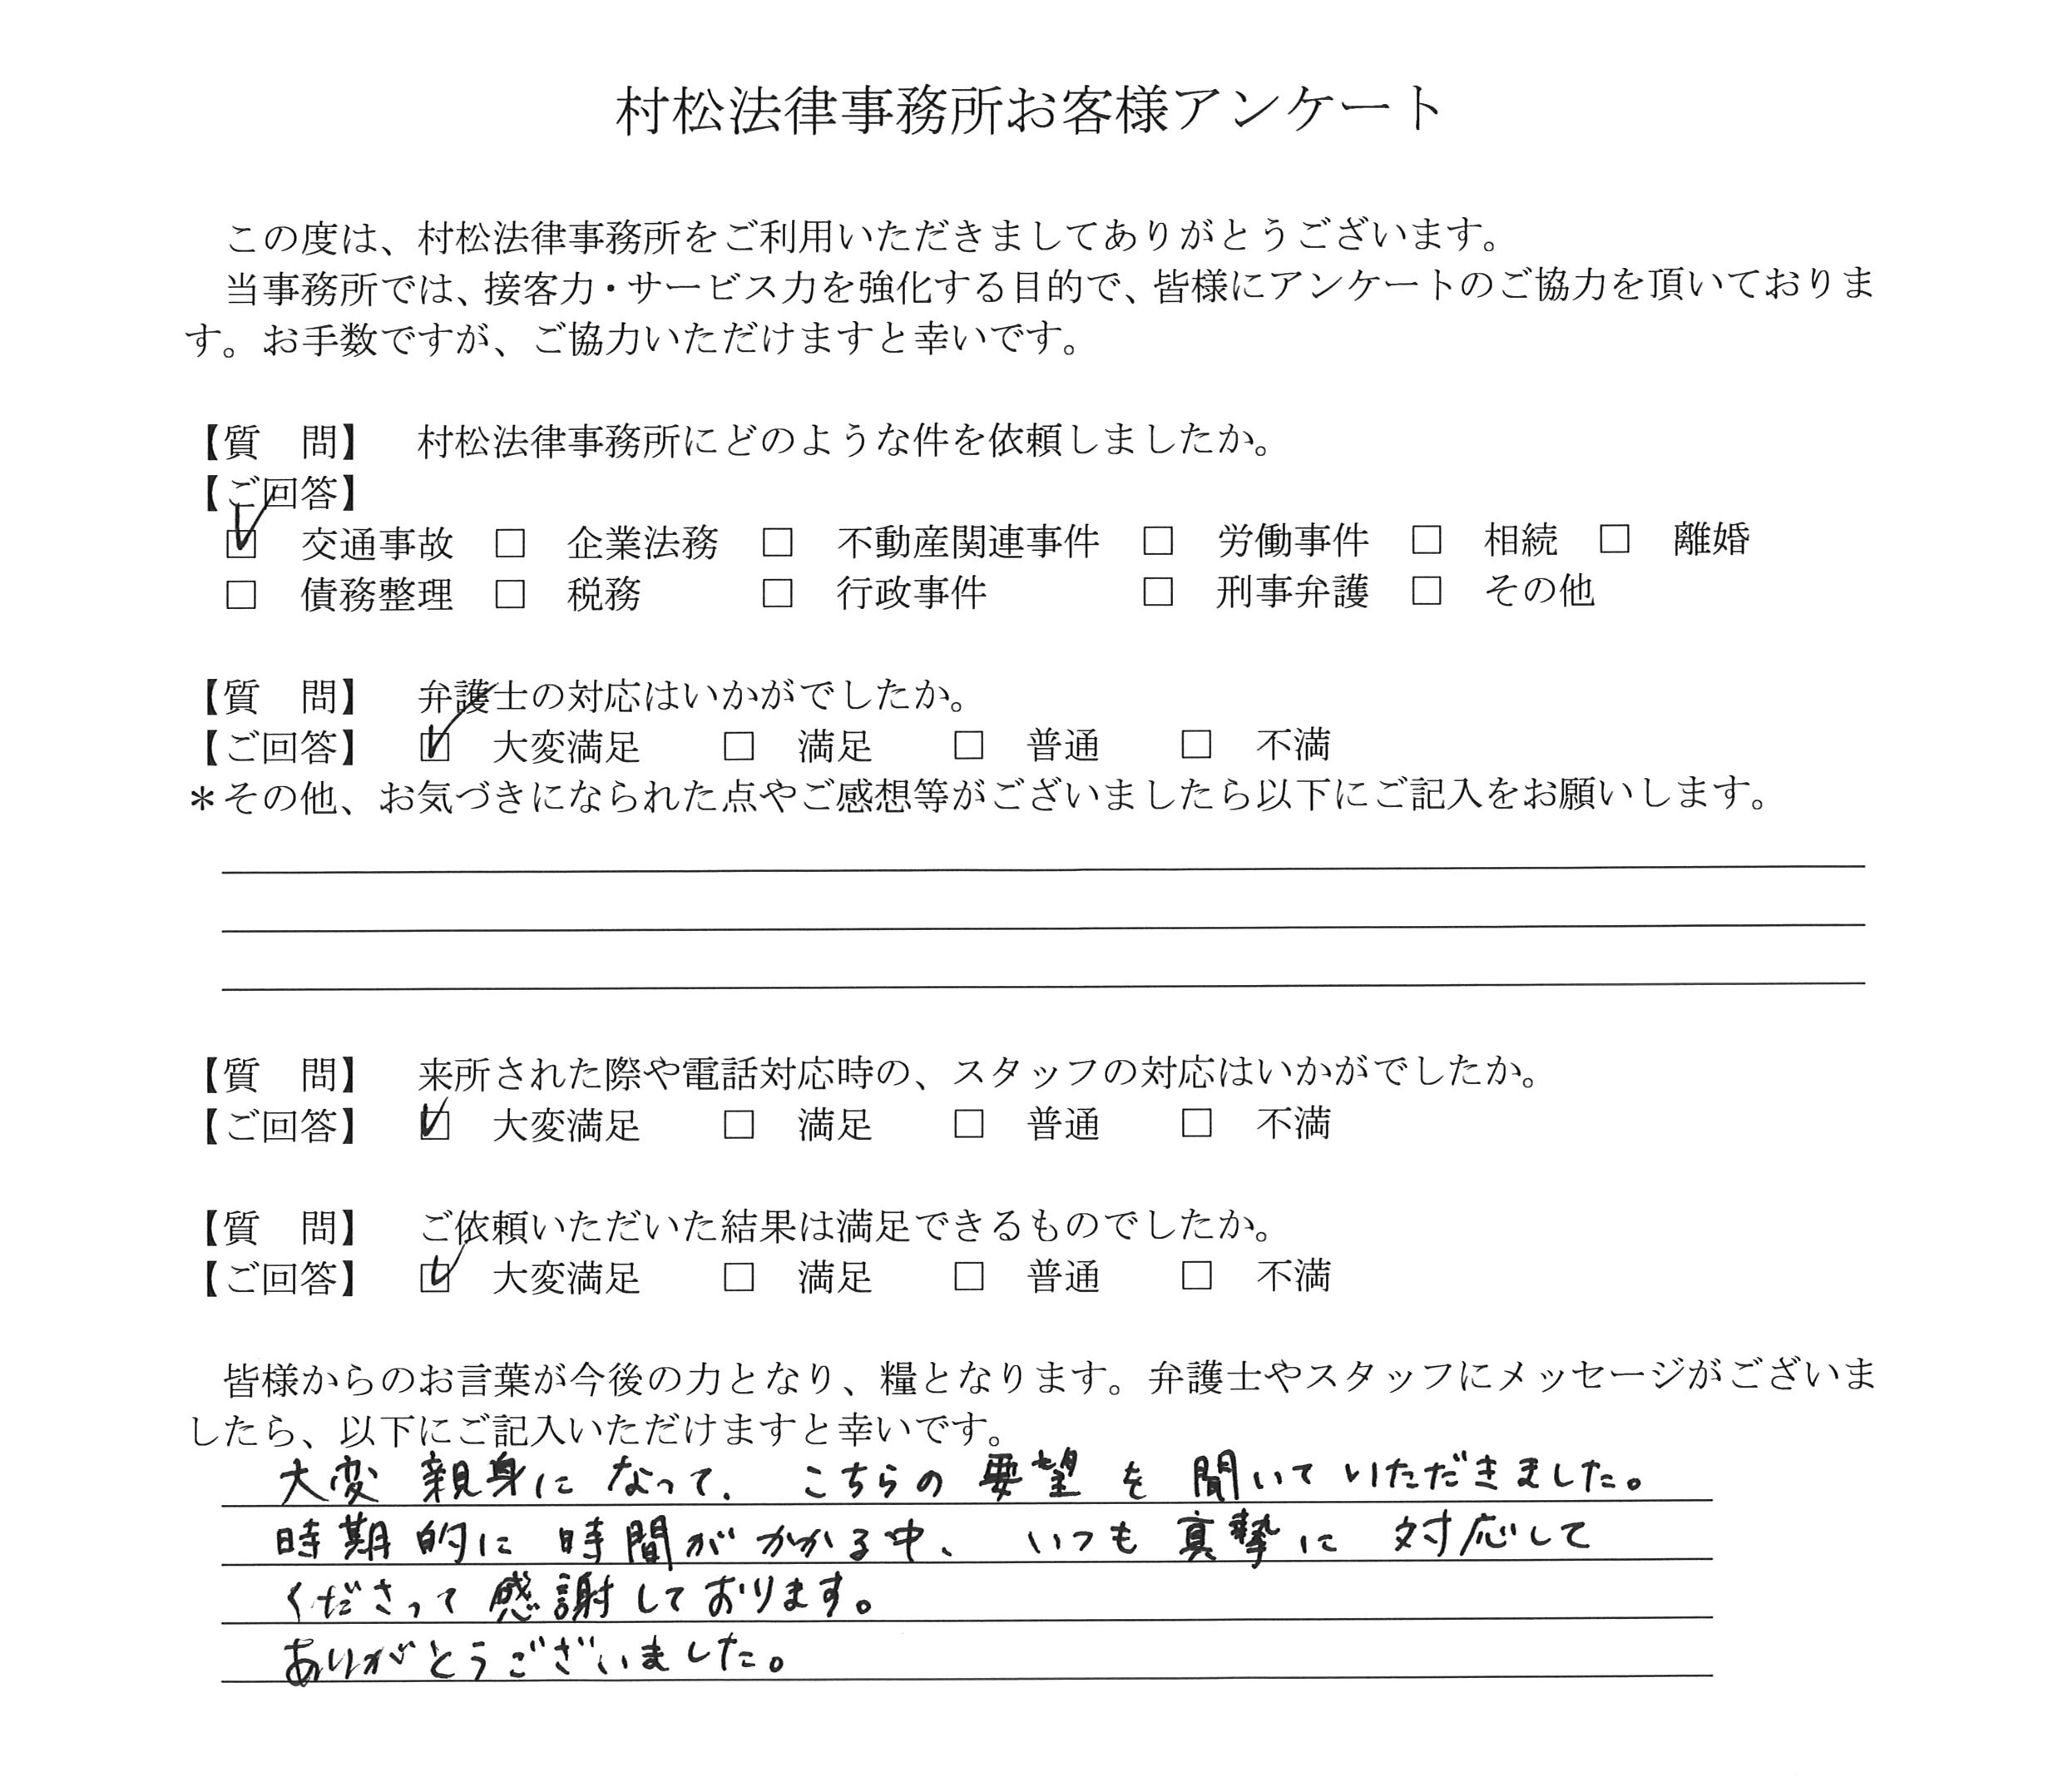 村松法律事務所お客様アンケート
この度は、村松法律事務所をご利用いただきましてありがとうございます。
当事務所では、接客力・サービス力を強化する目的で、皆様にアンケートのご協力を頂いておりま
す。お手数ですが、ご協力いただけますと幸いです。
【質　問】　村松法律事務所にどのような件を依頼しましたか。
【ご回答】
☑　交通事故　□　企業法務　□　不動産関連事件　□　労働事件　□　相続　□　離婚
□　債務整理　□　税務　□　行政事件　□　刑事弁護　□　その他
【質　問】　弁護士の対応はいかがでしたか。
【ご回答】　☑　大変満足　□　満足　□　普通　□　不満
＊その他、お気づきになられた点やご感想等がございましたら以下にご記入をお願いします。
【質　問】　来所された際や電話対応時の、スタッフの対応はいかがでしたか。
【ご回答】　☑　大変満足　□　満足　□　普通　□　不満
【質　問】　ご依頼いただいた結果は満足できるものでしたか。
【ご回答】　☑　大変満足　□　満足　□　普通　□　不満
皆様からのお言葉が今後の力となり、糧となります。弁護士やスタッフにメッセージがございま
したら、以下にご記入いただけますと幸いです。
大変親身になって、こちらの要望を聞いていただきました。
時期的に時間がかかる中、いつも真摯に対応して
くださって感謝しております。
ありがとうございました。